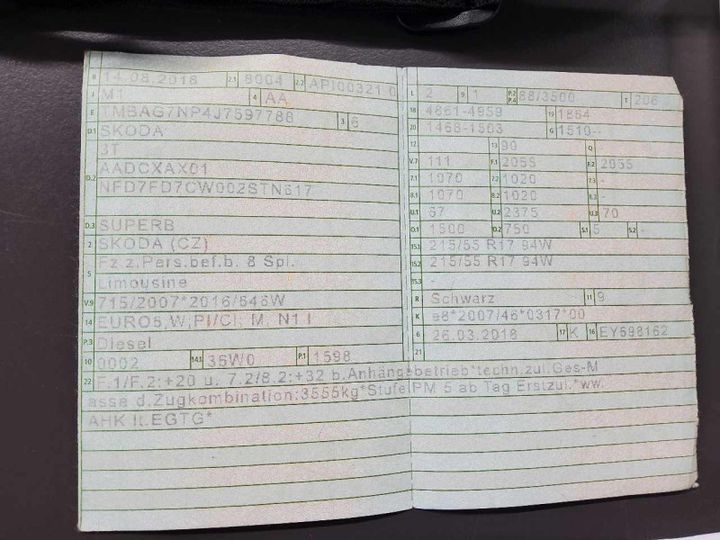 B 14.08.2018 2.1 8004 2.2 API00321 0
J M1 4 AA
E TMBAG7NP4J7597788 3 6
D.1 SKODA
3T
AADCXAX01
D.2 NFD7FD7CW002STN617
D.3 SUPERB
2 SKODA (CZ)
5 Fz.z.Pers.bef.b. 8 Spl.
Limousine
V.9 715/2007*2016/646W
14 EURO6,W,PI/CI; M, N1 I
P.3 Diesel
10 0002 14.1 36W0 P.1 1598
L 2 9 1 P.2 P.4 88/3500 T 206
18 4861-4959 19 1864
20 1468-1503 G 1510--
12 13 90 Q
V.7 111 F.1 2055 F.2 2055
7.1 1070 7.2 1020 7.3 -
8.1 1070 8.2 1020 8.3 -
U.1 67 U.2 2375 U.3 70
O.1 1500 O.2 750 S.1 5 S.2 -
15.1 215/55 R17 94W
15.2 215/55 R17 94W
15.3 -
R Schwarz 11 9
K e8*2007/46*0317*00
6 26.03.2018 17 K 16 EY698162
21
22 F.1/F.2:+20 u. 7.2/8.2:+32 b.Anhängebetrieb*techn.zul.Ges-M
asse d.Zugkombination:3555kg*Stufe PM 5 ab Tag Erstzul.*ww.
AHK lt.EGTG*